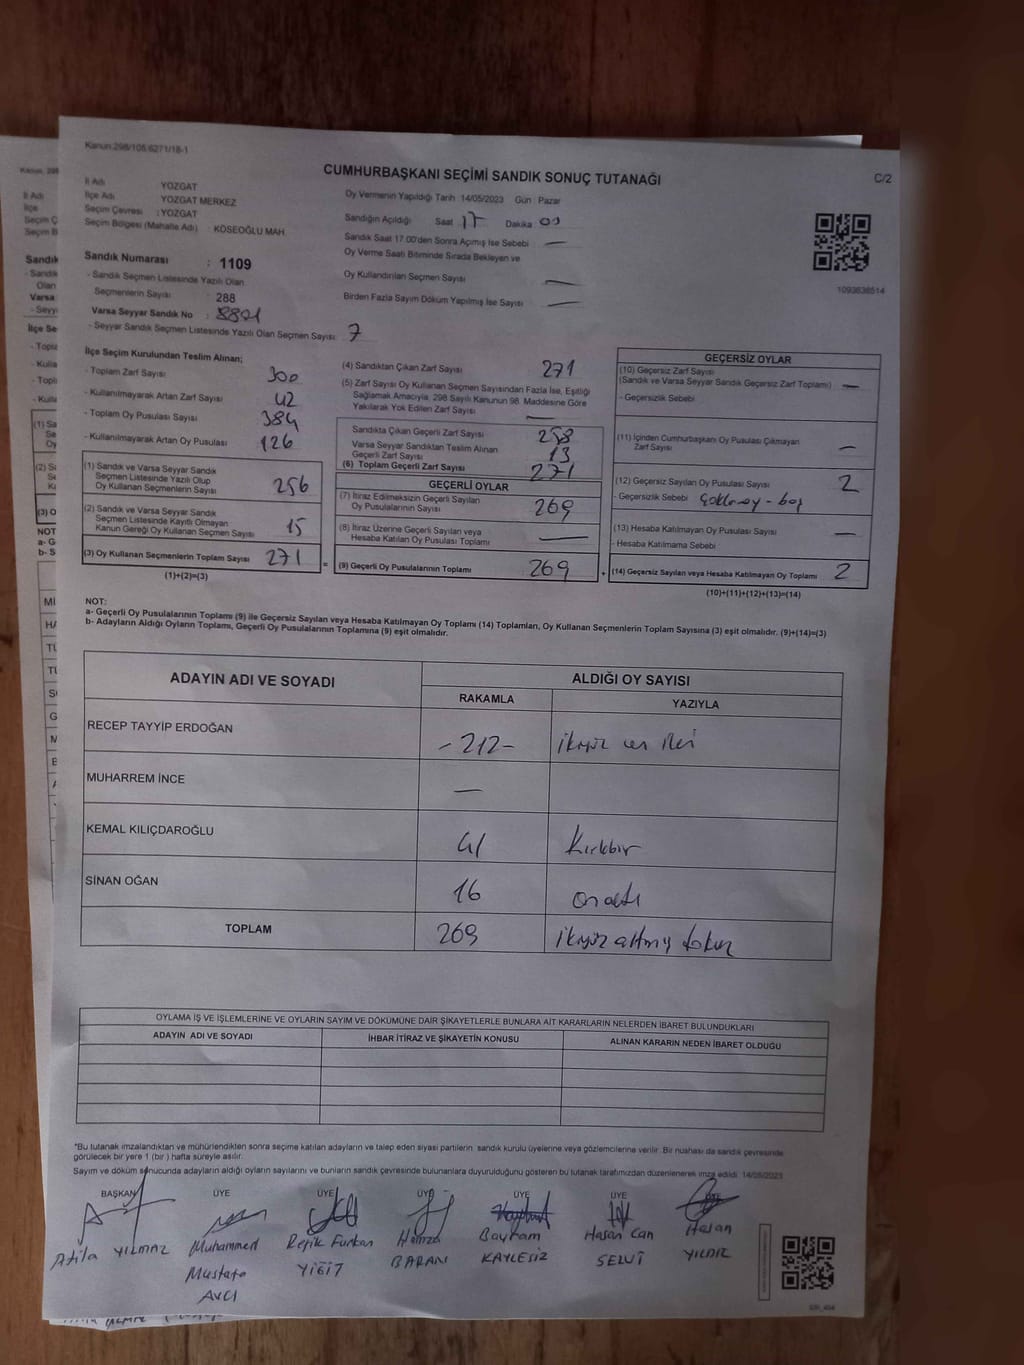 Kanun 298/105 6271/18-1
CUMHURBAŞKANI SEÇİMİ SANDIK SONUÇ TUTANAĞI
C/2
İl Adı YOZGAT
İlçe Adı YOZGAT MERKEZ
Seçim Çevresi : YOZGAT
Seçim Bölgesi (Mahalle Adı) : KÖSEOĞLU MAH.
Oy Vermenin Yapıldığı Tarih 14/05/2023 Gün : Pazar
Sandığın Açıldığı Saat 17 Dakika 00
Sandık Saat 17.00'den Sonra Açımış İse Sebebi —
Oy Verme Saati Bitiminde Sırada Bekleyen ve
Oy Kullandırılan Seçmen Sayısı —
Birden Fazla Sayım Döküm Yapılmış İse Sayısı —
1093838514
Sandık Numarası : 1109
- Sandık Seçmen Listesinde Yazılı Olan
Seçmenlerin Sayısı : 288
Varsa Seyyar Sandık No : 8801
- Seyyar Sandık Seçmen Listesinde Yazılı Olan Seçmen Sayısı: 7
İlçe Seçim Kurulundan Teslim Alınan;
- Toplam Zarf Sayısı 300
- Kullanılmayarak Artan Zarf Sayısı 42
- Toplam Oy Pusulası Sayısı 384
- Kullanılmayarak Artan Oy Pusulası 126
(1) Sandık ve Varsa Seyyar Sandık
Seçmen Listesinde Yazılı Olup
Oy Kullanan Seçmenlerin Sayısı 256
(2) Sandık ve Varsa Seyyar Sandık
Seçmen Listesinde Kayıtlı Olmayan
Kanun Gereği Oy Kullanan Seçmen Sayısı 15
(3) Oy Kullanan Seçmenlerin Toplam Sayısı 271
(1)+(2)=(3)
(4) Sandıktan Çıkan Zarf Sayısı 271
(5) Zarf Sayısı Oy Kullanan Seçmen Sayısından Fazla İse, Eşitliği
Sağlamak Amacıyla, 298 Sayılı Kanunun 98. Maddesine Göre
Yakılarak Yok Edilen Zarf Sayısı —
Sandıkta Çıkan Geçerli Zarf Sayısı 258
Varsa Seyyar Sandıktan Teslim Alınan
Geçerli Zarf Sayısı 13
(6) Toplam Geçerli Zarf Sayısı 271
GEÇERLİ OYLAR
(7) İtiraz Edilmeksizin Geçerli Sayılan
Oy Pusulalarının Sayısı 269
(8) İtiraz Üzerine Geçerli Sayılan veya
Hesaba Katılan Oy Pusulası Toplamı —
(9) Geçerli Oy Pusulalarının Toplamı 269
GEÇERSİZ OYLAR
(10) Geçersiz Zarf Sayısı
(Sandık ve Varsa Seyyar Sandık Geçersiz Zarf Toplamı) —
- Geçersizlik Sebebi
(11) İçinden Cumhurbaşkanı Oy Pusulası Çıkmayan
Zarf Sayısı —
(12) Geçersiz Sayılan Oy Pusulası Sayısı 2
- Geçersizlik Sebebi Çoklu oy - boş
(13) Hesaba Katılmayan Oy Pusulası Sayısı —
- Hesaba Katılmama Sebebi
(14) Geçersiz Sayılan veya Hesaba Katılmayan Oy Toplamı 2
(10)+(11)+(12)+(13)=(14)
NOT:
a- Geçerli Oy Pusulalarının Toplamı (9) ile Geçersiz Sayılan veya Hesaba Katılmayan Oy Toplamı (14) Toplamları, Oy Kullanan Seçmenlerin Toplam Sayısına (3) eşit olmalıdır. (9)+(14)=(3)
b- Adayların Aldığı Oyların Toplamı, Geçerli Oy Pusulalarının Toplamına (9) eşit olmalıdır.
ADAYIN ADI VE SOYADI
ALDIĞI OY SAYISI
RAKAMLA YAZIYLA
RECEP TAYYİP ERDOĞAN -212- ikiyüz on iki
MUHARREM İNCE —
KEMAL KILIÇDAROĞLU 41 Kırkbir
SİNAN OĞAN 16 onaltı
TOPLAM 269 ikiyüz altmış dokuz
OYLAMA İŞ VE İŞLEMLERİNE VE OYLARIN SAYIM VE DÖKÜMÜNE DAİR ŞİKAYETLERLE BUNLARA AİT KARARLARIN NELERDEN İBARET BULUNDUKLARI
ADAYIN ADI VE SOYADI İHBAR İTİRAZ VE ŞİKAYETİN KONUSU ALINAN KARARIN NEDEN İBARET OLDUĞU
*Bu tutanak imzalandıktan ve mühürlendikten sonra seçime katılan adayların ve talep eden siyasi partilerin sandık kurulu üyelerine veya gözlemcilerine verilir. Bir nushası da sandık çevresinde
görülecek bir yere 1 (bir ) hafta süreyle asılır.
Sayım ve döküm sonucunda adayların aldığı oyların sayılarını ve bunların sandık çevresinde bulunanlara duyurulduğunu gösteren bu tutanak tarafımızdan düzenlenerek imza edildi. 14/05/2023
BAŞKAN ÜYE ÜYE ÜYE ÜYE ÜYE ÜYE
Atila YILMAZ
Muhammed
Mustafa
AVCI
Refik Furkan
YİĞİT
Hamza
BARAN
Bayram
KAYLESİZ
Hasan Can
SELVİ
Hasan
YILDIZ